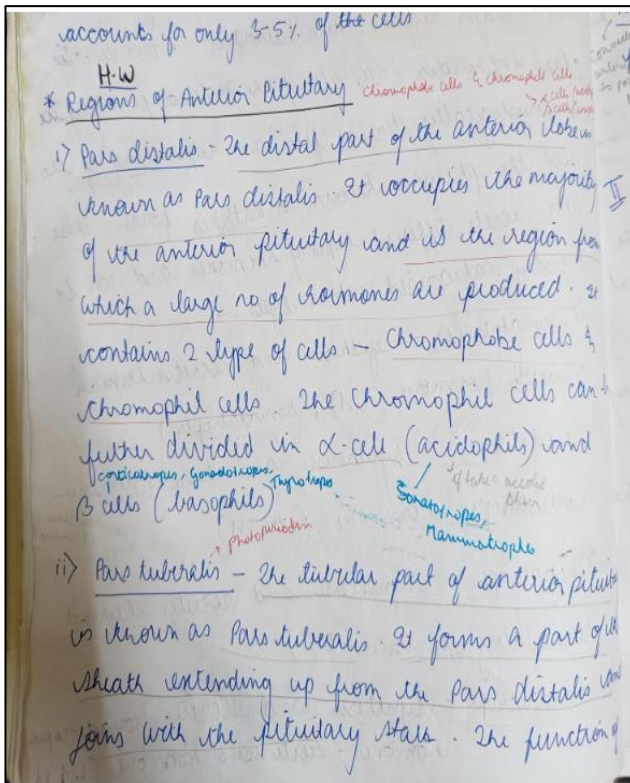 accounts for only 3-5% of the cells
H.W
* Regions of Anterior Pituitary chromophobe cells & chromophil cells
i) Pars distalis - The distal part of the anterior lobe is
known as Pars distalis. It occupies the majority
of the anterior pituitary and is the region from
which a large no of hormones are produced. It
contains 2 type of cells - Chromophobe cells &
chromophil cells. The Chromophil cells can
further divided in α-cell (acidophils) and
corticotropes, Gonadotropes, Thyrotrops
β cells (basophils)
Somatotropes,
Mammotrophs
acidic
photoperiodism
ii) Pars tuberalis - The tubular part of anterior pituitar
is known as Pars tuberalis. It forms a part of
sheath extending up from the Pars distalis and
joins with the pituitary stalk. The function of